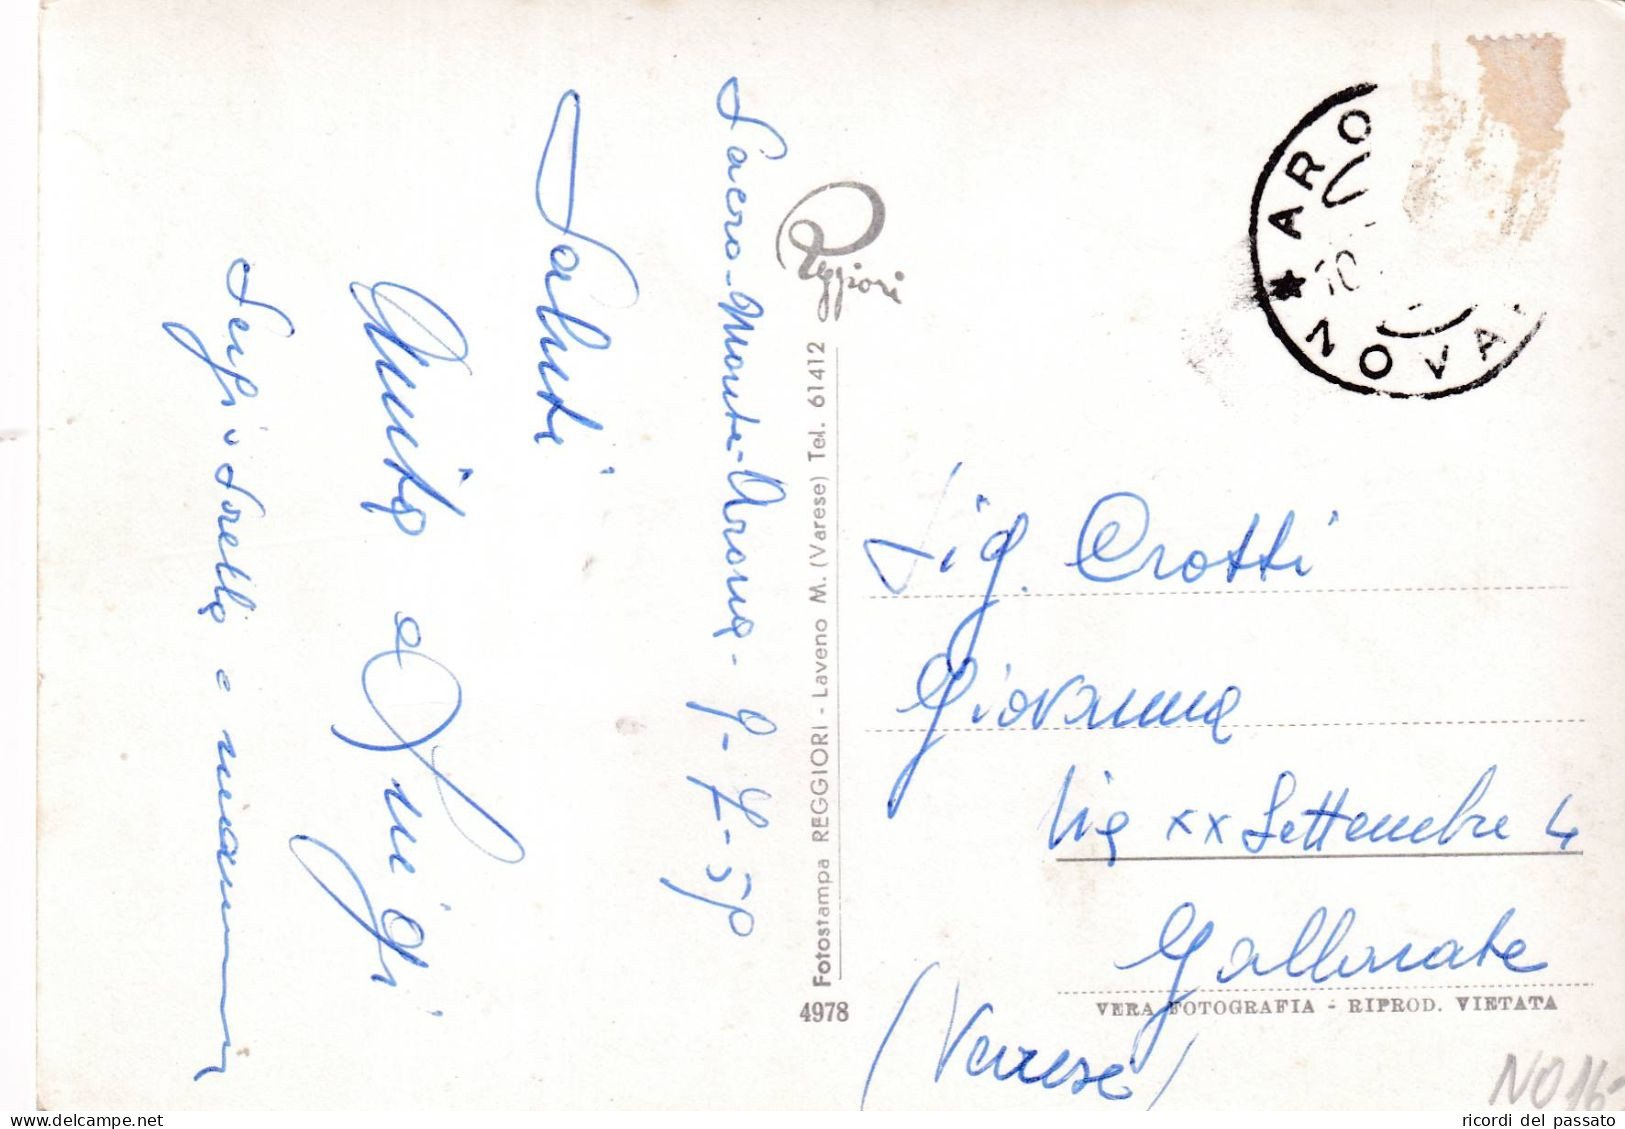 Sacro-Monte-Arona-9-7-59
Saluti
Anita e Luigi
Sergio Sorella e mamma
Reggiori
Fotostampa REGGIORI - Laveno M. (Varese) Tel. 61412
4978
★ ARO
10
NOVA
Sig. Crotti
Giovanna
Via XX Settembre 4
Gallarate
(Varese)
VERA FOTOGRAFIA - RIPROD. VIETATA
NO16
ricordi del passato